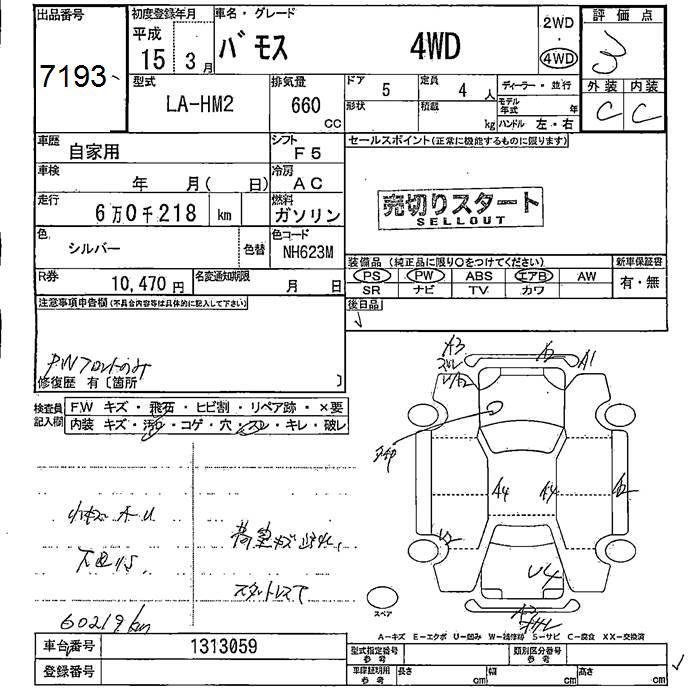 出品番号
7193
初度登録年月
平成
15 3月
車名・グレード
バモス 4WD
2WD
・
4WD
評価点
3
外装 内装
C C
型式
LA-HM2
排気量
660
CC
ドア 5 定員 4 人
形状 積載 kg
ディーラー・並行
モデル年式 年
ハンドル 左・右
車歴 自家用
シフト F5
車検 年 月( 日)
冷房 AC
走行 6万0千218 km
燃料 ガソリン
色 シルバー 色替
色コード NH623M
R券 10,470円
名変通知期限 月 日
セールスポイント(正常に機能するものに限ります)
売切りスタート
SELLOUT
装備品(純正品に限り○をつけてください)
PS PW ABS エアB AW
SR ナビ TV カワ
新車保証書
有・無
後日品
注意事項申告欄(不具合内容等は具体的に記入して下さい)
PWフロントのみ
修復歴 有〔箇所 〕
検査員記入欄
F.W キズ・飛石・ヒビ割・リペア跡・×要
内装 キズ・汚れ・コゲ・穴・スレ・キレ・破レ
小キズ A.U
荷室キズ汚れ、
スタットレス下
60219km
A3
A2
A1
A4
A4
A2
U2
U4
A3
スペア
A―キズ E―エクボ U―凹み W―補修跡 S―サビ C―腐食 XX―交換済
車台番号 1313059
登録番号
型式指定番号 参考
類別区分番号 参考
車庫証明用 参考
長さ cm 幅 cm 高さ cm